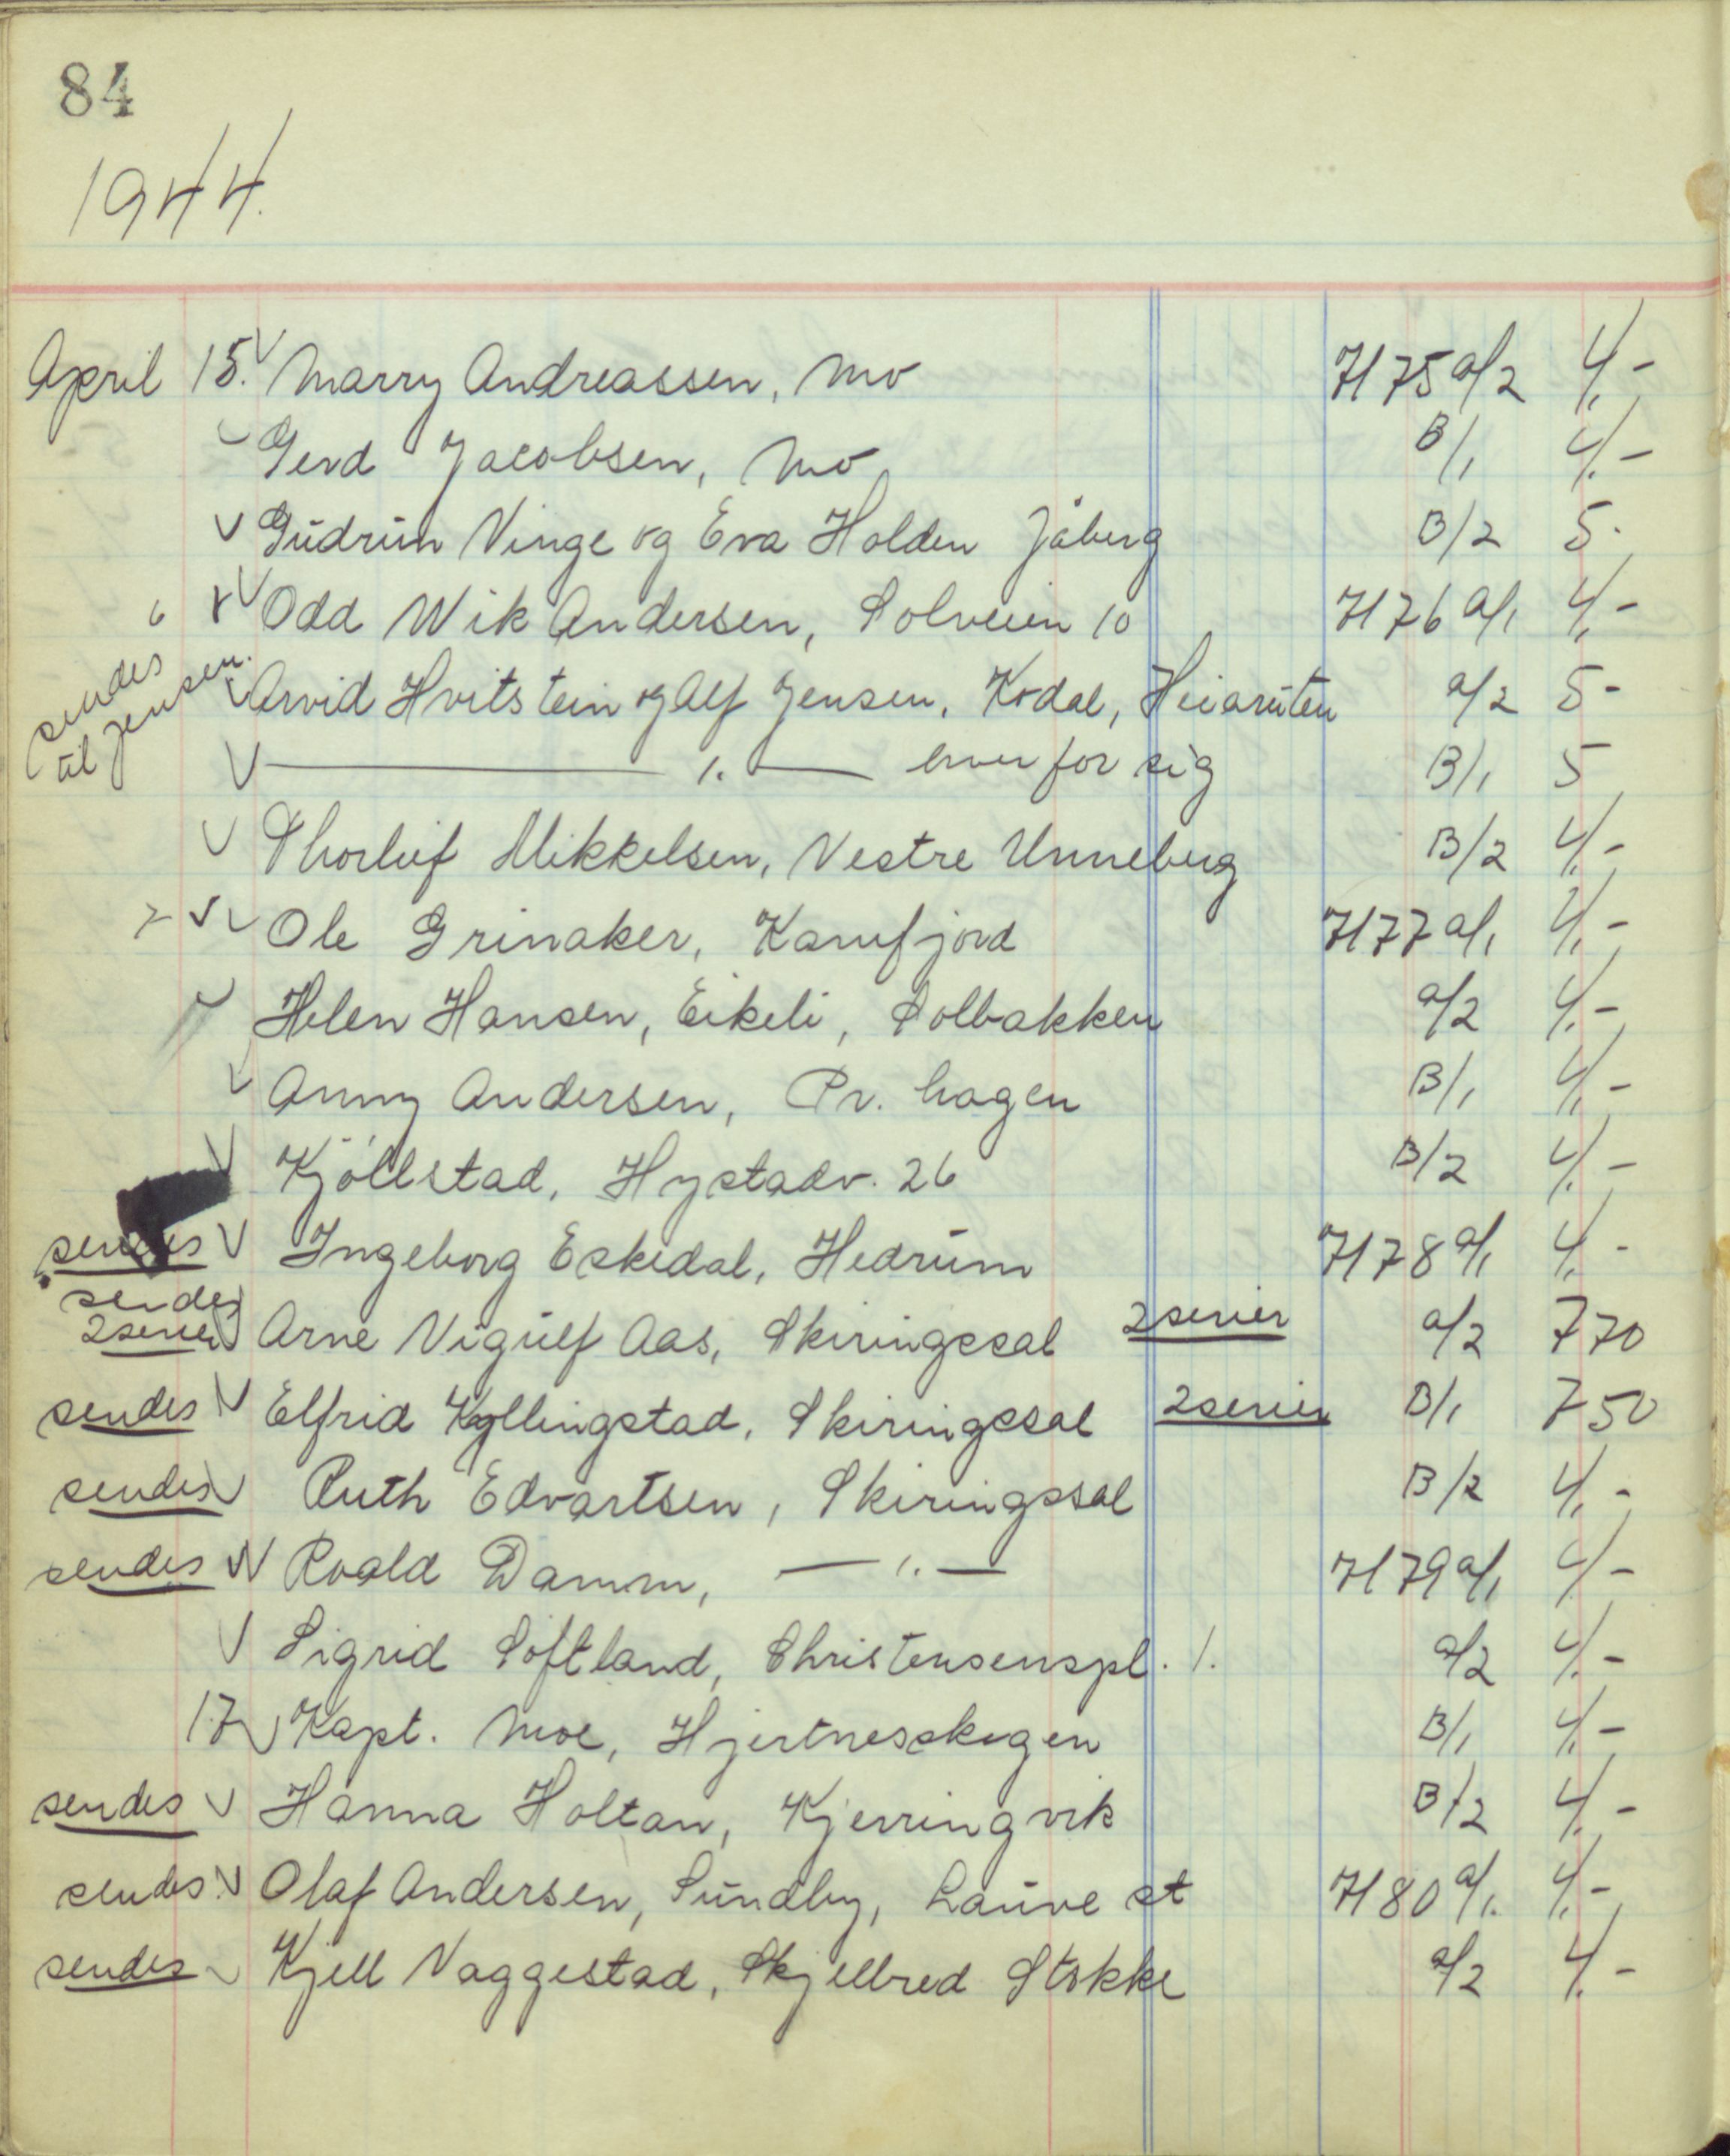 84
1944.
April 15. Marry Andreassen, Mo 7175 a/2 4,-
Gerd Jacobsen, Mo B/1 4,-
Gudrun Vinge og Eva Holden Jåberg B/2 5-
Odd Wik Andersen, Solveien 10 7176 a/1 4,-
sendes til Jensen. Arvid Hvitstein og Alf Jensen, Kodal, Heiaruten a/2 5-
— 〃 — hver for sig B/1 5
Thorleif Mikkelsen, Vestre Unneberg B/2 4,-
Ole Grinaker, Kamfjord 7177 a/1 4,-
Helen Hansen, Eikeli, Solbakken a/2 4,-
Anny Andersen, Pr. hagen B/1 4,-
Kjöllstad, Hystadv. 26 B/2 4,-
sendes Ingeborg Eskedal, Hedrum 7178 a/1 4,-
sendes 2 serier Arne Vigulf Aas, Skiringssal 2 serier a/2 7 70
sendes Elfrid Kyllingstad, Skiringssal 2 serier B/1 7 50
sendes Ruth Edvartsen, Skiringssal B/2 4,-
sendes Roald Damm, — 〃 — 7179 a/1 4,-
Sigrid Söftland, Christensenspl. 1. a/2 4,-
17 Kapt. Moe, Hjertnesskogen B/1 4,-
sendes Hanna Holtan, Kjerringvik B/2 4,-
sendes Olaf Andersen, Sundby, Lauve st 7180 a/1. 4,-
sendes Kjell Naggestad, Skjellbred Stokke a/2 4,-